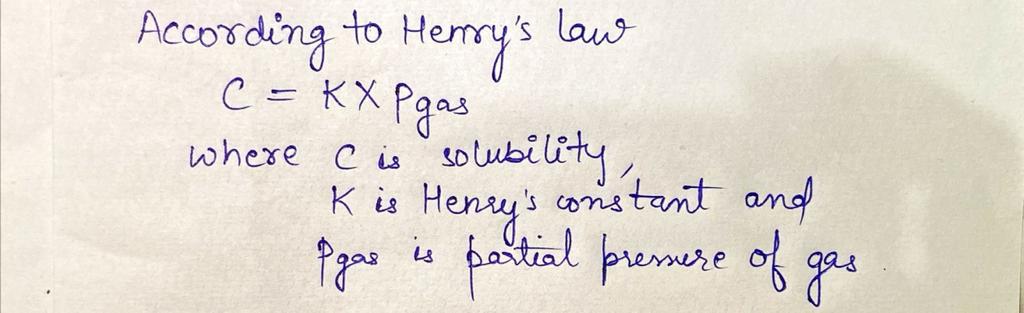 According to Henry's law
C = K X Pgas
where C is solubility,
K is Henry's constant and
Pgas is partial pressure of gas